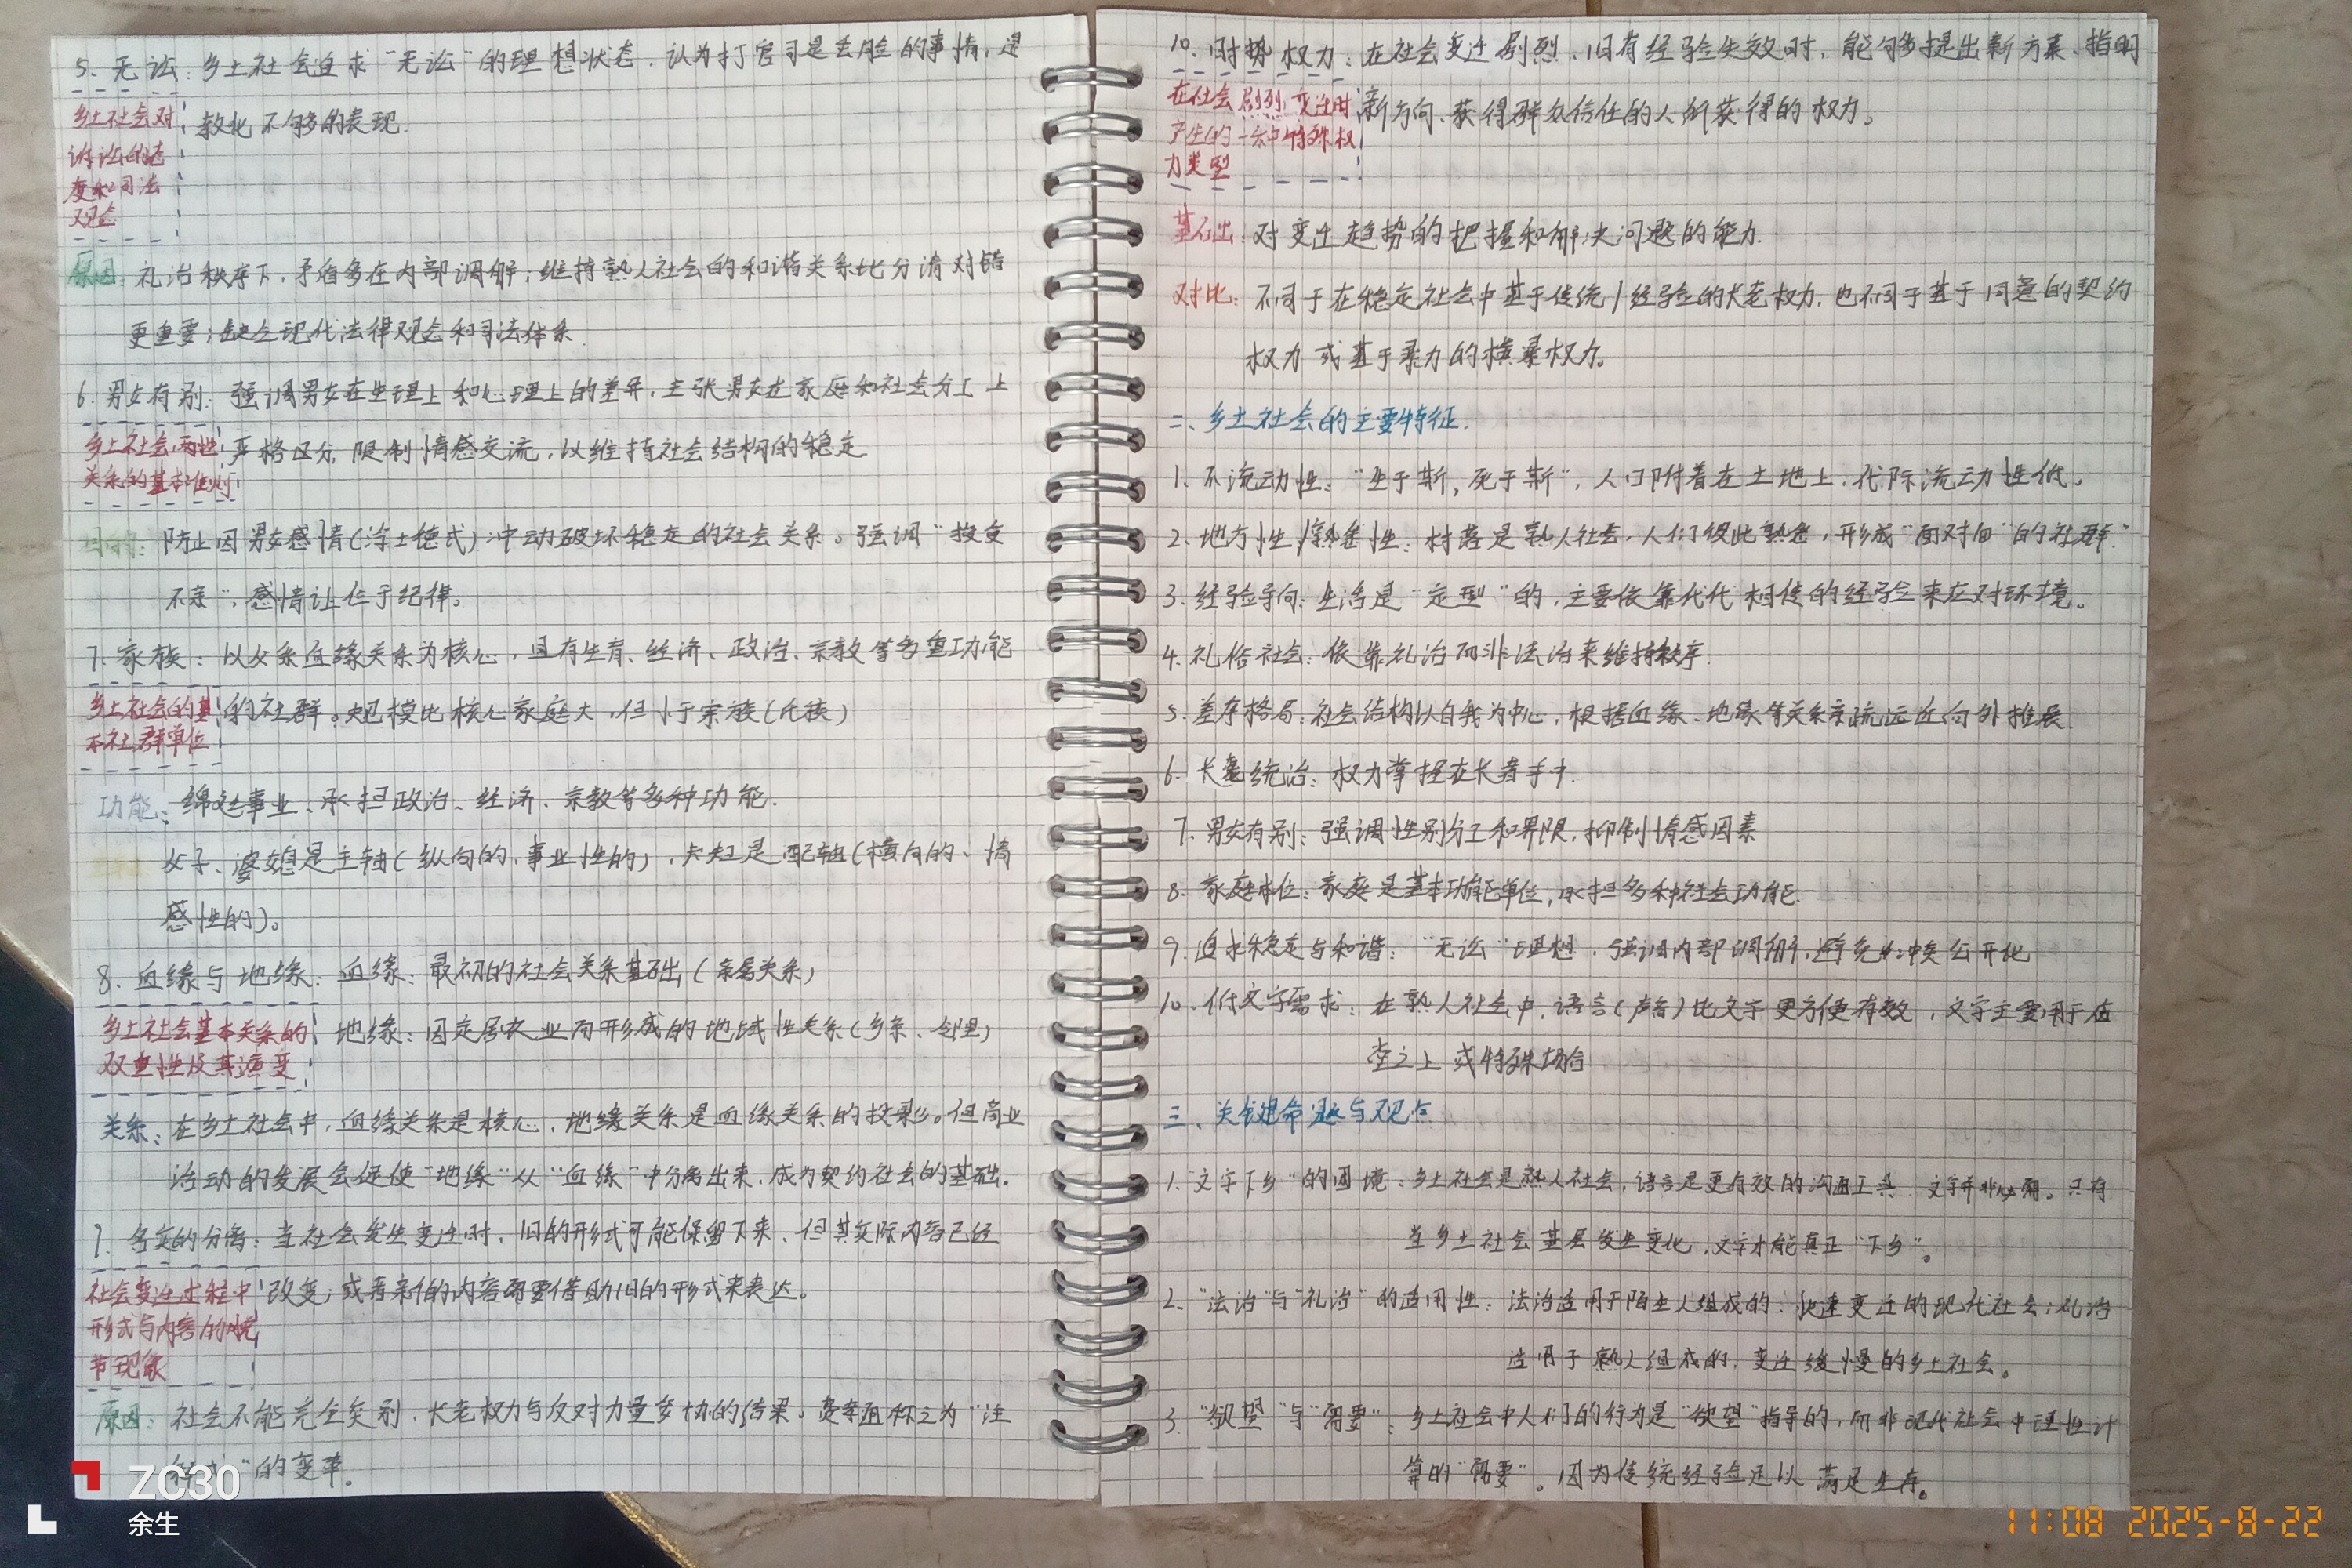 5. 无讼：乡土社会追求“无讼”的理想状态，认为打官司是丢脸的事情，是
教化不够的表现.
乡土社会对
诉讼的态
度和司法
观念
原因：礼治秩序下，矛盾多在内部调解；维持熟人社会的和谐关系比分清对错
更重要；缺乏现代法律观念和司法体系.
6. 男女有别：强调男女在生理上和心理上的差异，主张男女在家庭和社会分工上
严格区分，限制情感交流，以维持社会结构的稳定
乡土社会两性
关系的基本准则
目的：防止因男女感情(浮士德式)冲动破坏稳定的社会关系。强调“授受
不亲”，感情让位于纪律。
7. 家族：以父系血缘关系为核心，具有生育、经济、政治、宗教等多重功能
的社群。规模比核心家庭大，但小于宗族(氏族)
乡土社会的基
本社群单位
功能：绵延事业、承担政治、经济、宗教等多种功能.
父子、婆媳是主轴(纵向的，事业性的)，夫妇是配轴(横向的、情
感性的)。
8. 血缘与地缘：血缘：最初的社会关系基础(亲属关系)
地缘：因定居农业而形成的地域性关系(乡亲、邻里)
乡土社会基本关系的
双重性及其演变
关系：在乡土社会中，血缘关系是核心，地缘关系是血缘关系的投影。但商业
活动的发展会促使“地缘”从“血缘”中分离出来，成为契约社会的基础.
9. 名实的分离：当社会发生变迁时，旧的形式可能保留下来，但其实际内容已经
改变；或者新的内容需要借助旧的形式来表达。
社会变迁过程中
形式与内容的脱
节现象
原因：社会不能完全类别，长老权力与反对力量妥协的结果。费孝通称之为“注
释式”的变革。
10. 时势权力：在社会变迁剧烈，旧有经验失效时，能够提出新方案、指明
新方向、获得群众信任的人所获得的权力。
在社会剧烈变迁时
产生的一种特殊权
力类型
基础：对变迁趋势的把握和解决问题的能力.
对比：不同于在稳定社会中基于传统/经验的长老权力，也不同于基于同意的契约
权力或基于暴力的横暴权力。
二、乡土社会的主要特征.
1. 不流动性：“生于斯，死于斯”，人们附着在土地上，代际流动性低。
2. 地方性/熟悉性：村落是熟人社会，人们彼此熟悉，形成“面对面”的社群.
3. 经验导向：生活是“定型”的，主要依靠代代相传的经验来应对环境。
4. 礼俗社会：依靠礼治而非法治来维持秩序.
5. 差序格局：社会结构以自我为中心，根据血缘、地缘等关系亲疏远近向外推展.
6. 长老统治：权力掌握在长者手中.
7. 男女有别：强调性别分工和界限，抑制情感因素
8. 家庭本位：家庭是基本功能单位，承担多种社会功能.
9. 追求稳定与和谐：“无讼”理想，强调内部调解，避免冲突公开化
10. 低文字需求：在熟人社会中，语言(声音)比文字更方便有效，文字主要用于庙
堂之上或特殊场合
三、关键命题与观点
1. “文字下乡”的困境：乡土社会是熟人社会，语言是更有效的沟通工具，文字并非必需。只有
当乡土社会基层发生变化，文字才能真正“下乡”。
2. “法治”与“礼治”的适用性：法治适用于陌生人组成的、快速变迁的现代社会；礼治
适用于熟人组成的，变迁缓慢的乡土社会。
3. “欲望”与“需要”：乡土社会中人们的行为是“欲望”指导的，而非现代社会中理性计
算的“需要”。因为传统经验足以满足生存。
ZC30
余生
11:08 2025-8-22